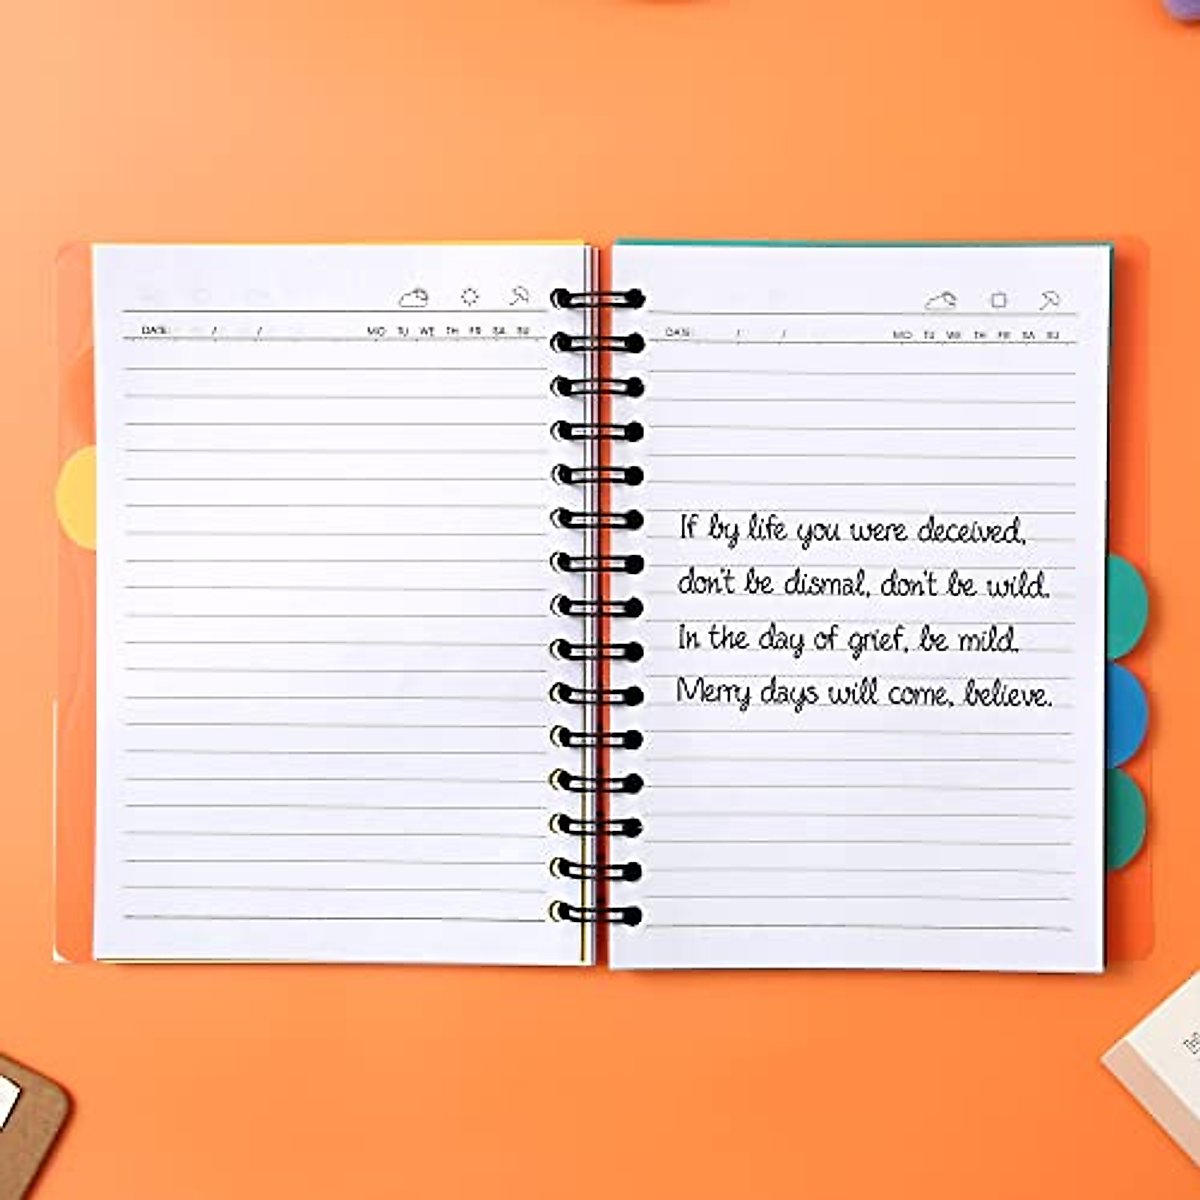 DATE: / /
MO TU WE TH FR SA SU
DATE: / /
MO TU WE TH FR SA SU
If by life you were deceived,
don't be dismal, don't be wild.
In the day of grief, be mild.
Merry days will come, believe.